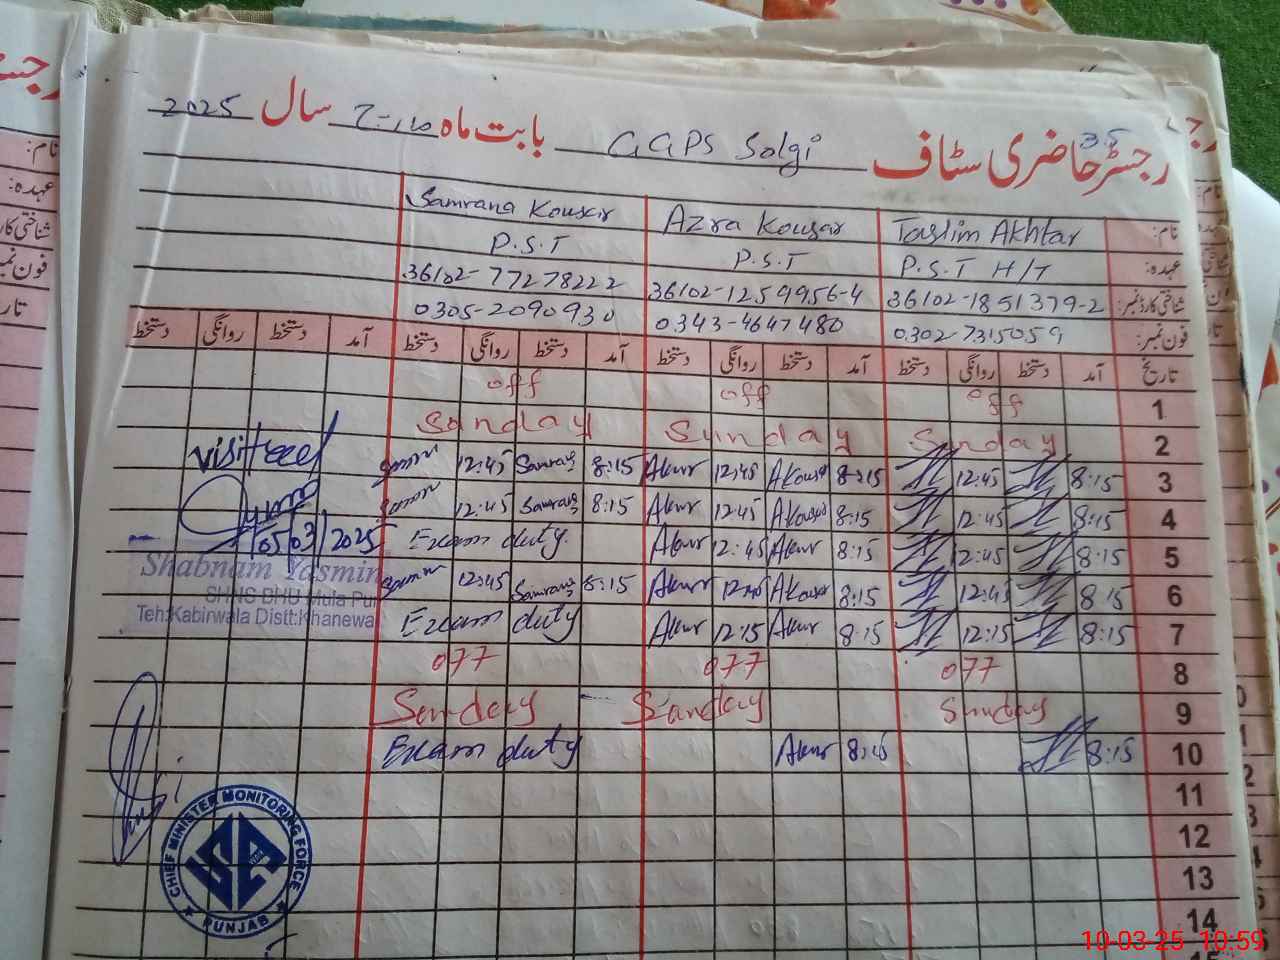 رجسٹر حاضری سٹاف GGPS Solgi بابت ماہ مارچ سال 2025
35
نام: Taslim Akhtar Azra Kousar Samrana Kousar
عہدہ: P.S.T H/T P.S.T P.S.T
شناختی کارڈ نمبر: 36102-1851379-2 36102-1259956-4 36102-77278222
فون نمبر: 0302-7315059 0343-4647480 0305-2090930
تاریخ آمد دستخط روانگی دستخط آمد دستخط روانگی دستخط آمد دستخط روانگی دستخط آمد دستخط روانگی دستخط
1 off off off
2 Sunday Sunday Sunday
3 8:15 12:45 8:15 Akousar 12:45 Akusr 8:15 Samrana 12:45
4 8:15 12:45 8:15 Akousar 12:45 Akusr 8:15 Samrana 12:45
5 8:15 12:45 8:15 Akusr 12:45 Akusr Exam duty
6 8:15 12:45 8:15 Akousar 12:45 Akusr 8:15 Samrana 12:45
7 8:15 12:15 8:15 Akusr 12:15 Akusr Exam duty
8 off off off
9 Sunday Sunday Sunday
10 8:15 8:15 Akusr Exam duty
11
12
13
14
visited
05/03/2025
Shabnam Yasmin
SHNS BHU Mula Pur
Teh:Kabirwala Distt:Khanewal
CHIEF MINISTER MONITORING FORCE
PUNJAB
10-03-25 10:59